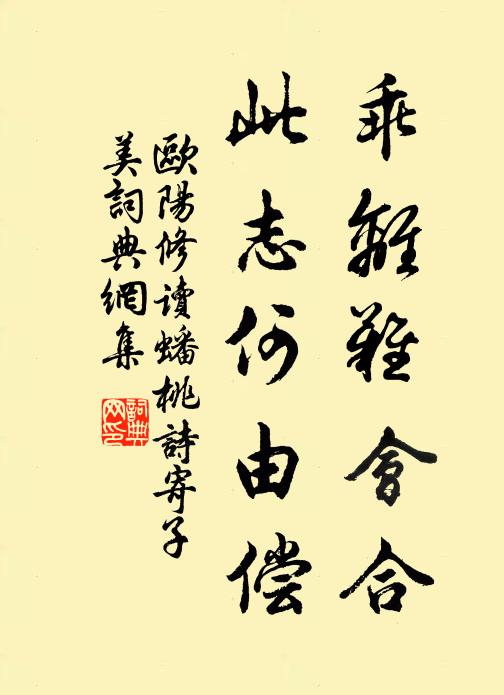 乖離難會合
此志何由偿
歐陽修读蟠桃詩寄子
美詞典網集
詞典
网印